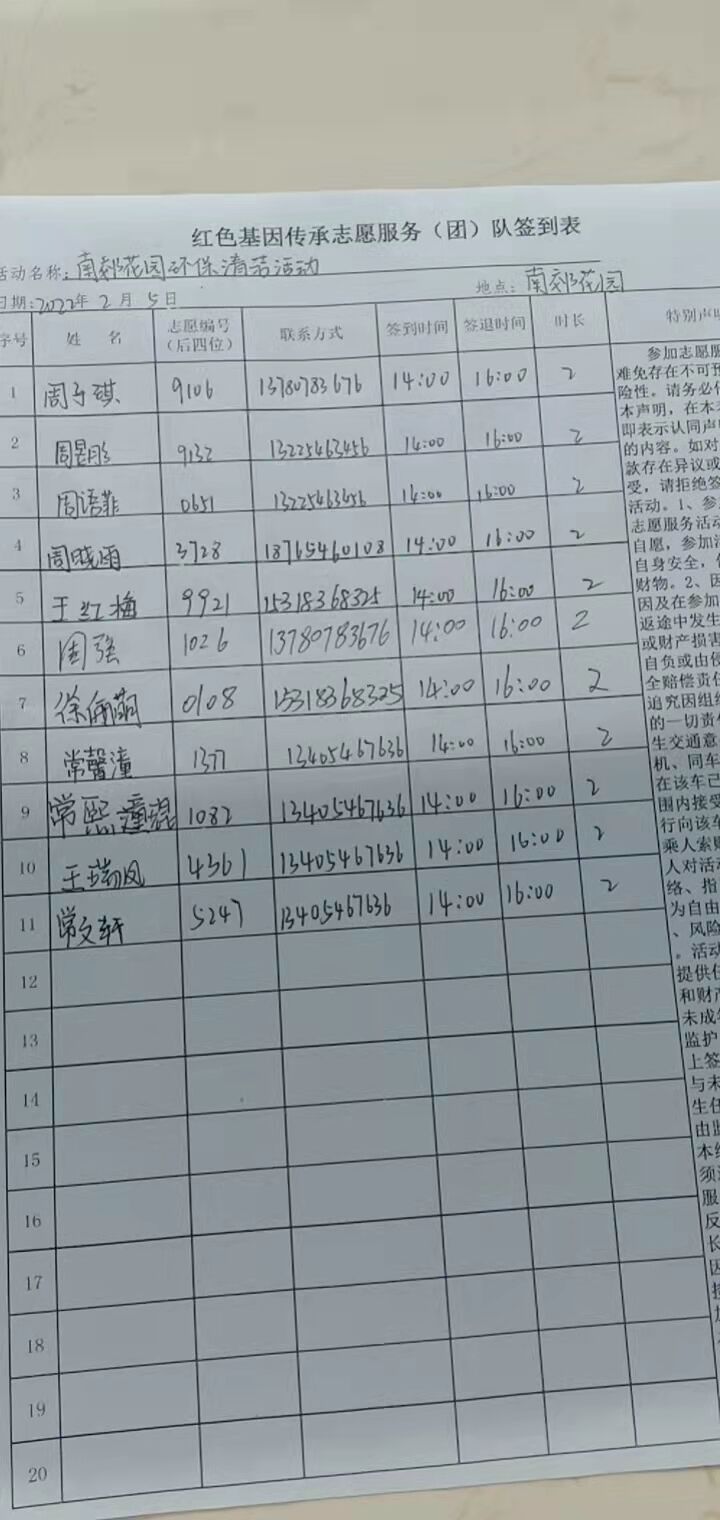 红色基因传承志愿服务（团）队签到表
活动名称：南郊花园环保清洁活动
日期：2022年 2 月 5 日 地点：南郊花园
序号 姓 名 志愿编号（后四位） 联系方式 签到时间 签退时间 时长 特别声明
1 周子琪 9106 13780783676 14:00 16:00 2
2 周昱彤 9132 13225463456 14:00 16:00 2
3 周语菲 0651 13225463456 14:00 16:00 2
4 周晓雨 3728 18765460108 14:00 16:00 2
5 王红梅 9921 15318368325 14:00 16:00 2
6 周强 1026 13780783676 14:00 16:00 2
7 徐 0108 15318368325 14:00 16:00 2
8 常馨潼 1377 13405467636 14:00 16:00 2
9 常熙 1082 13405467636 14:00 16:00 2
10 王瑞凤 4361 13405467636 14:00 16:00 2
11 常文轩 5247 13405467636 14:00 16:00 2
12
13
14
15
16
17
18
19
20
参加志愿服
难免存在不可预
险性。请务必仔
本声明，在本
即表示认同声明
的内容。如对
款存在异议或
受，请拒绝签
活动。1、参
志愿服务活动
自愿，参加活
自身安全，保
财物。2、因
因及在参加
返途中发生
或财产损害
自负或由侵
全赔偿责任
追究因组织
的一切责任
生交通意
机、同车
在该车已
围内接受
行向该车
乘人索赔
人对活动
络、指
为自由
、风险
。活动
提供任
和财产
未成年
监护
上签
与未
生任
由监
本组
须
服
反
长
因